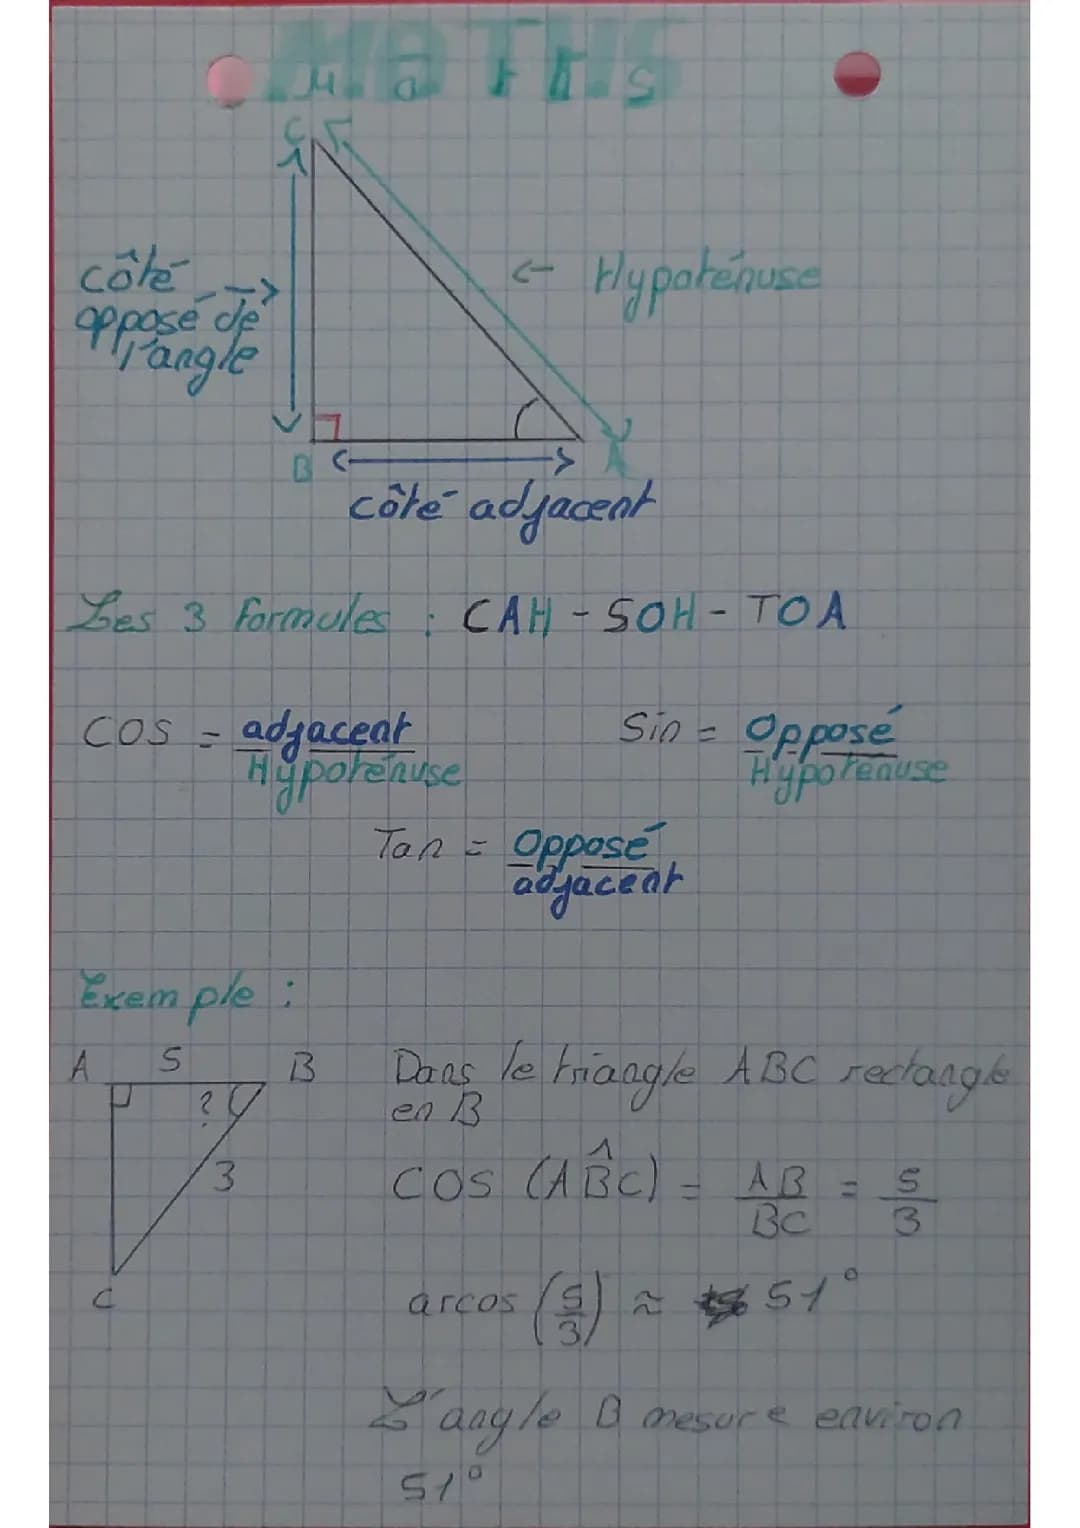 MATHS
Maths
C
côté
opposé de
l'angle
→
← Hypoténuse
B
A
côté adjacent
Les 3 formules : CAH - SOH - TOA
COS = adjacent
Hypoténuse
Sin = Opposé
Hypoténuse
Tan = Opposé
adjacent
Exemple :
A 5 B
?
3
C
Dans le triangle ABC rectangle
en B
COS (AB̂C) = AB/BC = 5/3
arcos (5/3) ≈ 51°
L'angle B mesure environ
51°